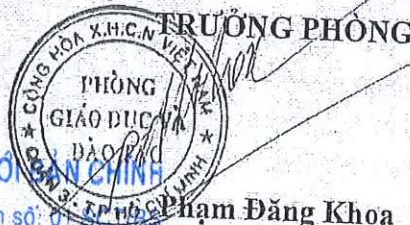 TRƯỞNG PHÒNG
CỘNG HÒA X.H.C.N VIỆT NAM
PHÒNG
GIÁO DỤC VÀ
ĐÀO TẠO
QUẬN 3 - T.P HỒ CHÍ MINH
BẢN CHÍNH
Phạm Đăng Khoa